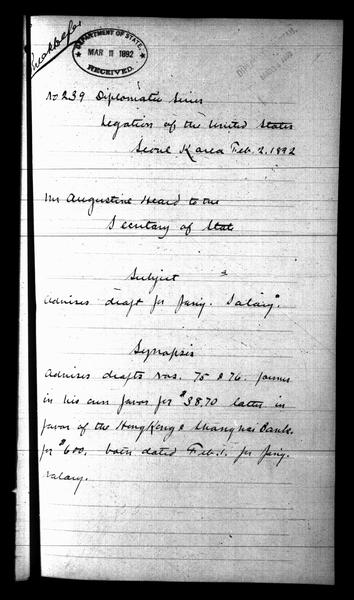 DEPARTMENT OF STATE,
MAR 11 1892
RECEIVED.
No 239 Diplomatic Series
Legation of the United States
Seoul Korea Feb. 2. 1892
Mr Augustine Heard to the
Secretary of State
Subject
Advises draft for Jany. Salary.
Synopsis
Advises drafts Nos. 75 & 76. former
in his own favor for $38.70 latter in
favor of the HongKong & Shanghai Bank.
for $600. both dated Feb. 1. for Jany.
Salary.